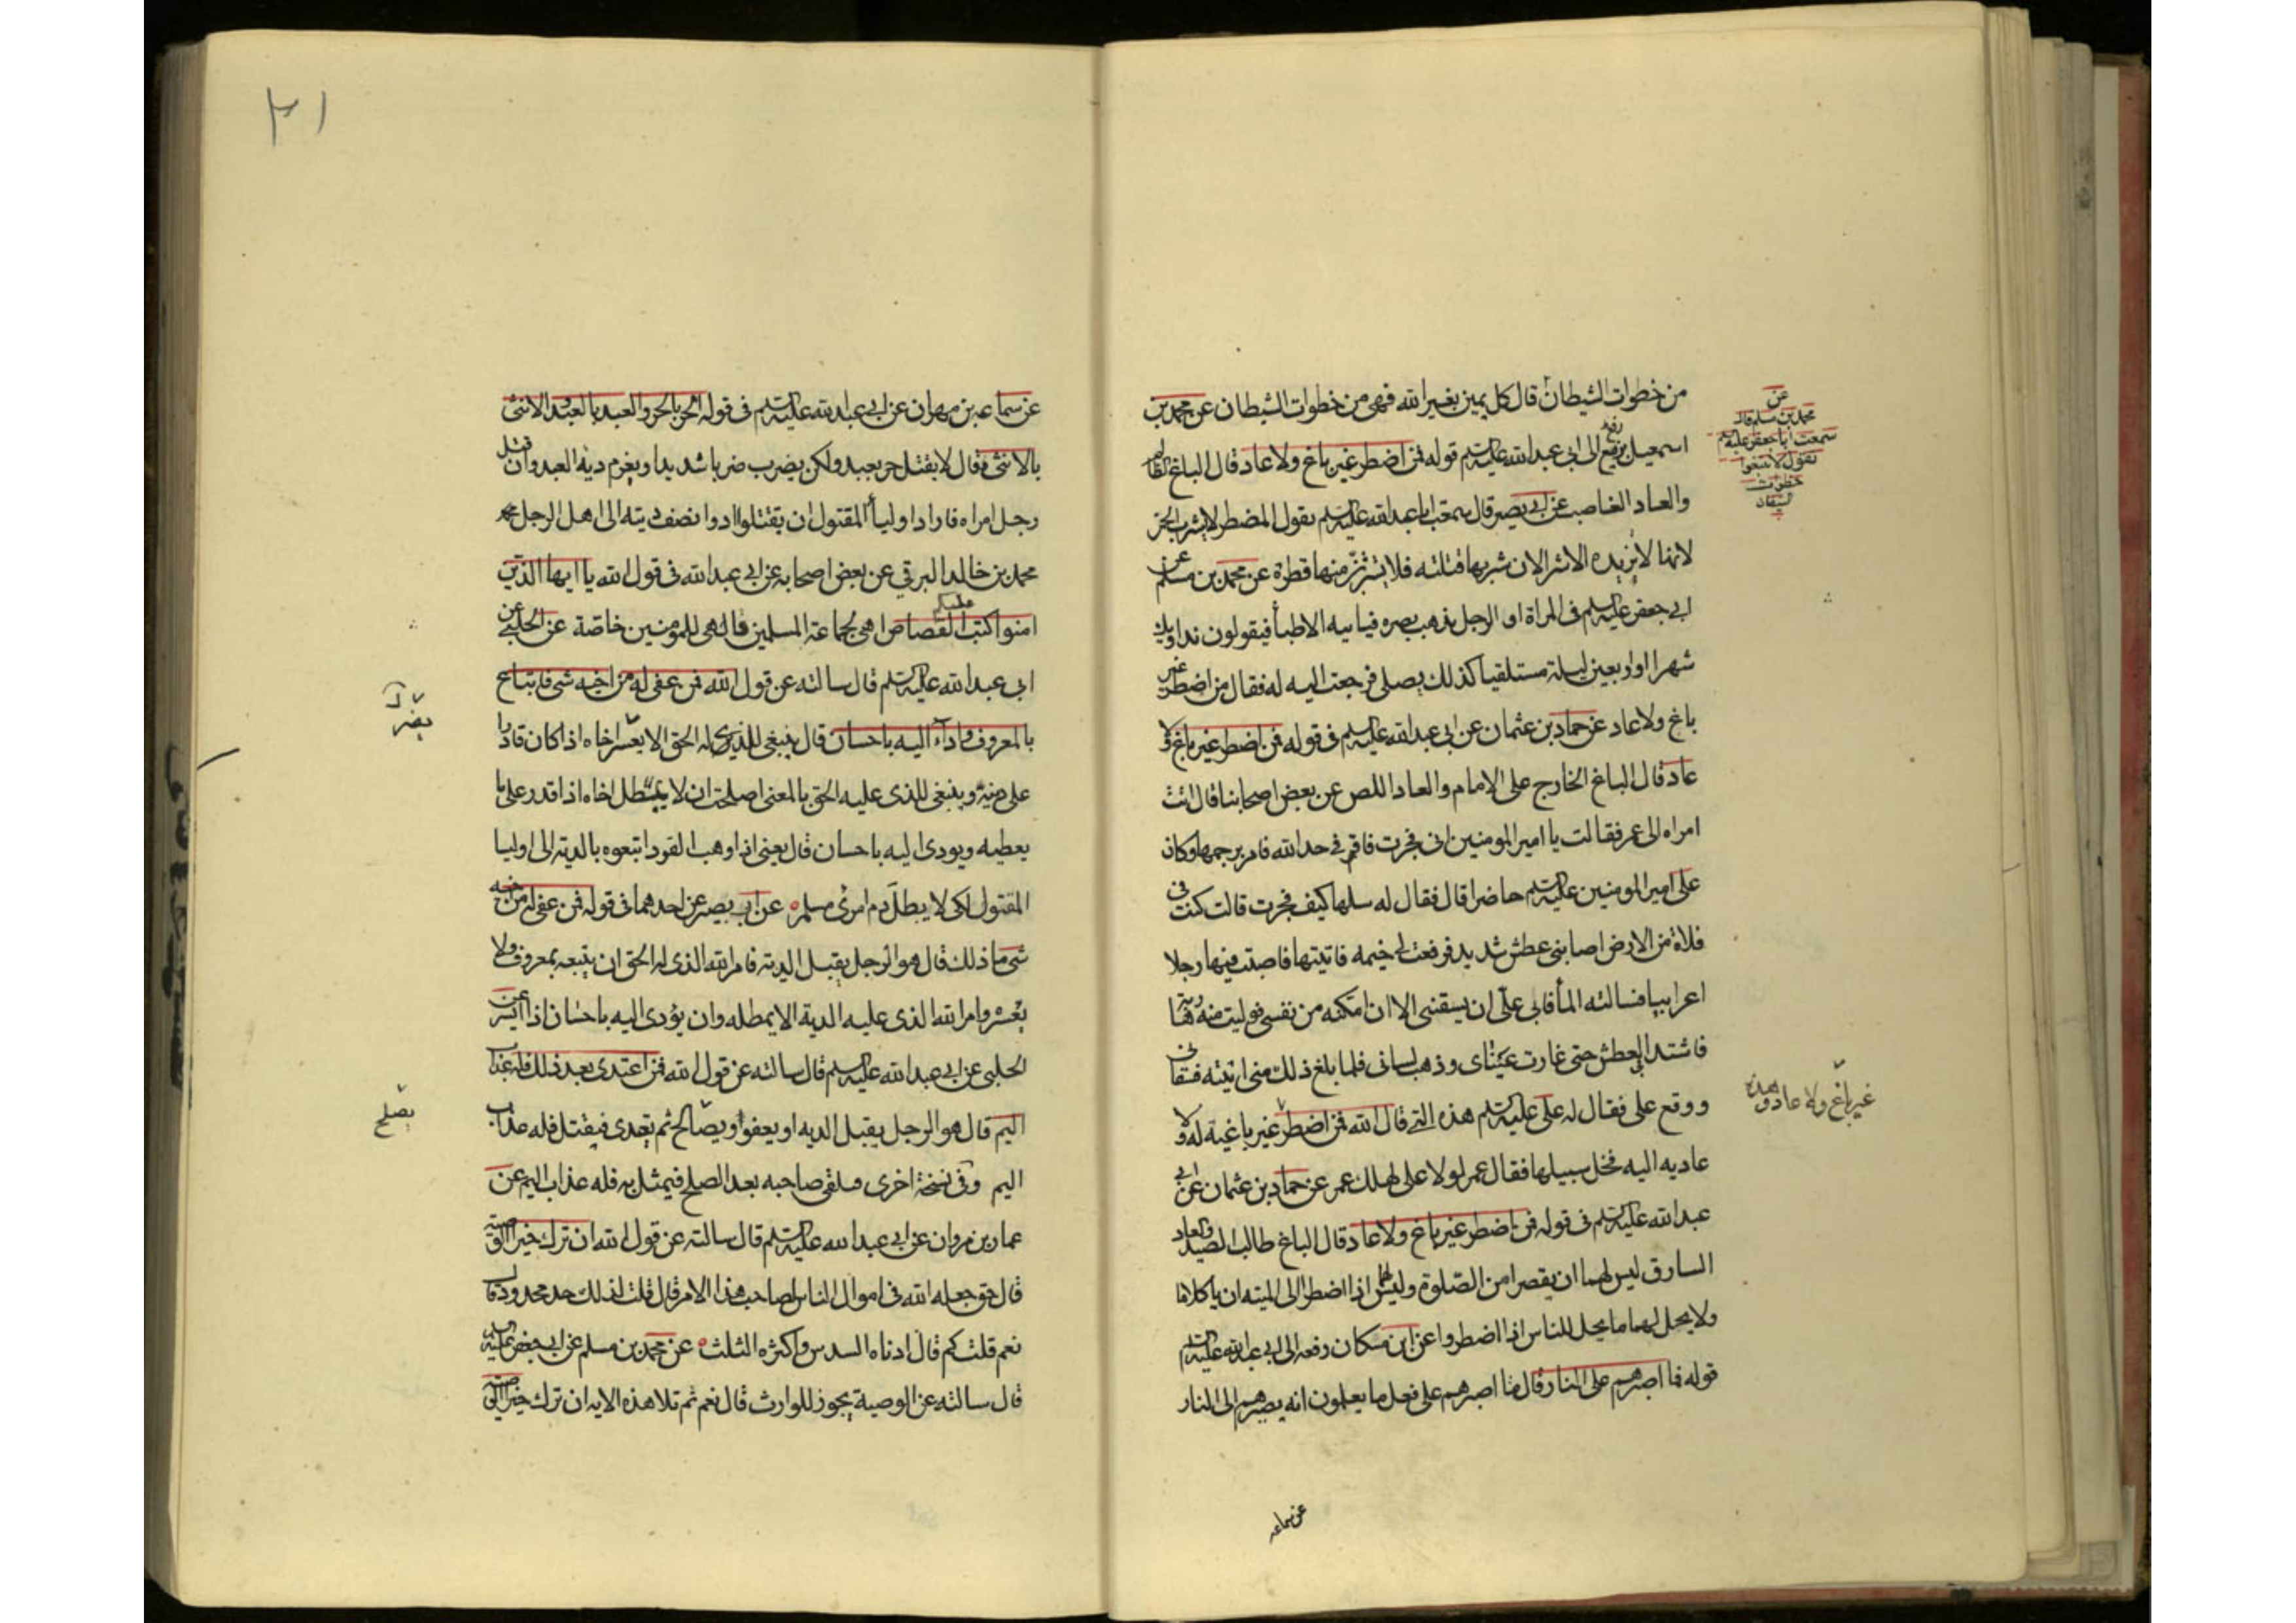 من خطوات الشيطان قال كل يمين بغير الله فهى من خطوات الشيطان عن محمد بن
اسمعيل بزيع رفعه الى ابى عبدالله عليه السلم قوله فمن اضطر غير باغ ولا عاد قال الباغ الظالم
والعاد الغاصب عن ابى بصير قال سمعت ابا عبدالله عليه السلم يقول المضطر لا يشرب الخمر
لانها لا تزيده الا شرا لان شربها قتلته فلا يشرب منها قطرة عن محمد بن مسلم عن
ابى جعفر عليه السلم فى المراة او الرجل يذهب بصره فياتيه الاطبأ فيقولون نداويك
شهرا او اربعين ليلة مستلقيا كذلك يصلى فرجعت اليه له فقال من اضطر غير
باغ ولا عاد عن حماد بن عثمان عن ابى عبدالله عليه السلم فى قوله فمن اضطر غير باغ ولا
عاد قال الباغ الخارج على الامام والعاد اللص عن بعض اصحابنا قال اتت
امراه الى عمر فقالت يا امير المومنين انى فجرت فاقم فى حد الله فامر برجمها وكان
على امير المومنين عليه السلم حاضرا قال فقال له سلها كيف فجرت قالت كنت فى
فلاة من الارض اصابنى عطش شديد فرفعت لى خيمه فاتيتها فاصبت فيها رجلا
اعرابيا فسالته المأ فابى على ان يسقنى الا ان امكنه من نفسى فوليت منه هاربة
فاشتد بى العطش حتى غارت عيناى وذهب لسانى فلما بلغ ذلك منى اتيته فسقانى
ووقع على فقال له على عليه السلم هذه التى قال الله فمن اضطر غير باغية له ولا
عاديه اليه فخل سبيلها فقال عمر لولا على لهلك عمر عن حماد بن عثمان عن ابى
عبدالله عليه السلم فى قوله فمن اضطر غير باغ ولا عاد قال الباغ طالب الصيد والعاد
السارق ليس لهما ان يقصرا من الصلوة وليس لهما اذا اضطرا الى الميته ان ياكلاها
ولا يحل لهما ما يحل للناس اذا اضطروا عن ابن مسكان رفعه الى ابى عبدالله عليه السلم
قوله فما اصبرهم على النار قال ما اصبرهم على فعل ما يعلمون انه يصيرهم الى النار
عن سماعه
عن
محمد بن مسلم قال
سمعت ابا جعفر عليه السلم
يقول لا تتبعوا
خطوات
الشيطان
غير باغ ولا عاد هذه
٢١
عن سماعه بن مهران عن ابى عبدالله عليه السلم فى قوله الحر بالحر والعبد بالعبد والانثى
بالانثى فقال لا يقتل حر بعبد ولكن يضرب ضربا شديدا ويغرم دية العبد وان قتل
رجل امراه فاراد اوليأ المقتول ان يقتلوا ادوا نصف ديته الى اهل الرجل
محمد بن خالد البرقى عن بعض اصحابه عن ابى عبدالله فى قول الله يا ايها الذين
امنوا كتب عليكم القصاص اهى لجماعة المسلمين قال هى للمومنين خاصة عن الحلبى عن
ابى عبدالله عليه السلم قال سالته عن قول الله فمن عفى له من اخيه شى فاتباع
بالمعروف واداء اليه باحسان قال ينبغى للذى له الحق الا يعسر اخاه اذا كان قادرا
على ديته وينبغى للذى عليه الحق بالمعنى ان لا يمطل اخاه اذا قدر على ما
يعطيه ويودى اليه باحسان قال يعنى اذا وهب القود اتبعوه بالدية الى اوليا
المقتول لكى لا يبطل دم امرئ مسلم عن ابى بصير عن احدهما فى قوله فمن عفى له من اخيه
شى ما ذلك قال هو الرجل يقبل الدية فامر الله الذى له الحق ان يتبعه بمعروف ولا
يعسره وامر الله الذى عليه الدية الا يمطله وان يؤدى اليه باحسان اذا ايسر عن
الحلبى عن ابى عبدالله عليه السلم قال سالته عن قول الله فمن اعتدى بعد ذلك فله عذاب
اليم قال هو الرجل يقبل الديه او يعفو او يصالح ثم يعتدى فيقتل فله عذاب
اليم وفى نسخة اخرى فيلقى صاحبه بعد الصلح فيمثل به فله عذاب اليم عن
عمار بن مروان عن ابى عبدالله عليه السلم قال سالته عن قول الله ان ترك خيرا الوصية
قال حق جعله الله فى اموال الناس لصاحب هذا الامر قال قلت لذلك حد محدود قال
نعم قلت كم قال ادناه السدس واكثره الثلث عن محمد بن مسلم عن ابى جعفر عليه السلم
قال سالته عن الوصية يجوز للوارث قال نعم ثم تلا هذه الايه ان ترك خيرا الوصية
يصلح